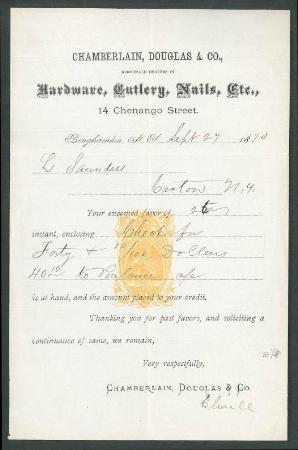 CHAMBERLAIN, DOUGLAS & CO.,
WHOLESALE DEALERS IN
Hardware, Cutlery, Nails, Etc.,
14 Chenango Street.
Binghamton, N. Y. Sept 27 1870
L Saunders
Croton N.Y.
Your esteemed favor of
instant, enclosing Check for
Forty & 10/100 Dollars
40 10 to Balance a/c
is at hand, and the amount placed to your credit.
Thanking you for past favors, and soliciting a
continuation of same, we remain,
Very respectfully,
CHAMBERLAIN, DOUGLAS & CO.